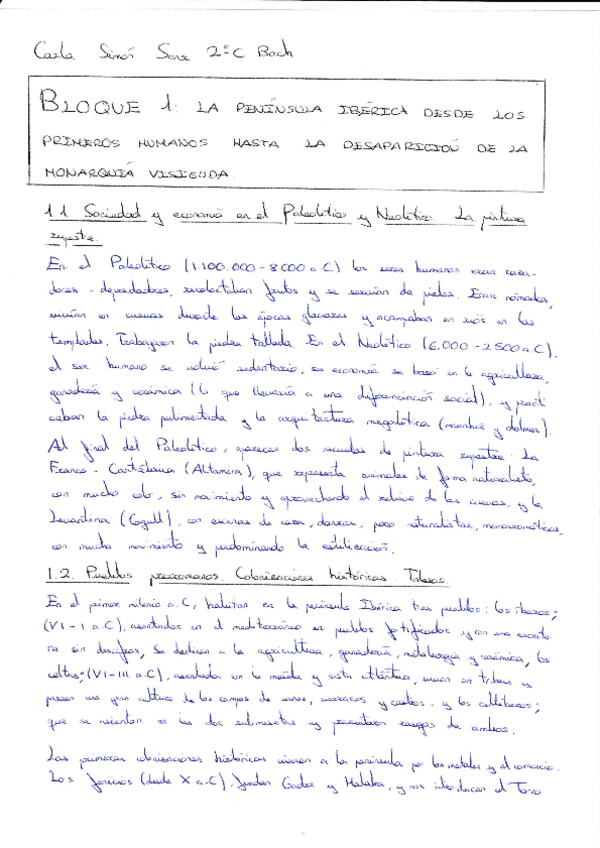 Carla Simón Sanz 2ºC Bach
BLOQUE 1: LA PENÍNSULA IBÉRICA DESDE LOS
PRIMEROS HUMANOS HASTA LA DESAPARICIÓN DE LA
MONARQUÍA VISIGODA.
1.1 Sociedad y economía en el Paleolítico y Neolítico. La pintura
rupestre.
En el Paleolítico (1.100.000-8000 a.C) los seres humanos eran caza-
dores-depredadores, recolectaban frutos y se servían de pieles. Eran nómadas,
vivían en cuevas durante las épocas glaciares y acampaban en ríos en las
templadas. Trabajaron la piedra tallada. En el Neolítico (6.000-2500 a.C),
el ser humano se volvió sedentario, su economía se basó en la agricultura,
ganadería y cerámica (lo que llevaría a una diferenciación social), y practi
caban la piedra pulimentada y la arquitectura megalítica (menhir y dolmen).
Al final del Paleolítico, aparecen dos escuelas de pintura rupestre. La
Franco-Cantábrica (Altamira), que representa animales de forma naturalista,
con mucho color, sin movimiento y aprovechando el relieve de las cuevas, y la
Levantina (Cogull), con escenas de caza, danzas, poco naturalistas, monocromáticas,
con mucho movimiento y predominando la estilización.
1.2. Pueblos prerromanos. Colonizaciones históricas. Tartesos.
En el primer milenio a.C, habitan en la península Ibérica tres pueblos: los íberos;
(VI-I a.C), asentados en el mediterráneo en pueblos fortificados y con una escritu
ra sin descifrar, se dedican a la agricultura, ganadería, metalurgia y cerámica, los
celtas; (VI-III a.C), asentados en la meseta y costa atlántica, viven en tribus y
poseen una gran cultura de los campos de urnas, verracos y castros. y los celtíberos;
que se asientan en las dos submesetas y presentan rasgos de ambos.
Las primeras colonizaciones históricas vienen a la península por los metales y al comercio.
Los fenicios (desde X a.C), fundan Gades y Malaka, y nos introducen el Torno